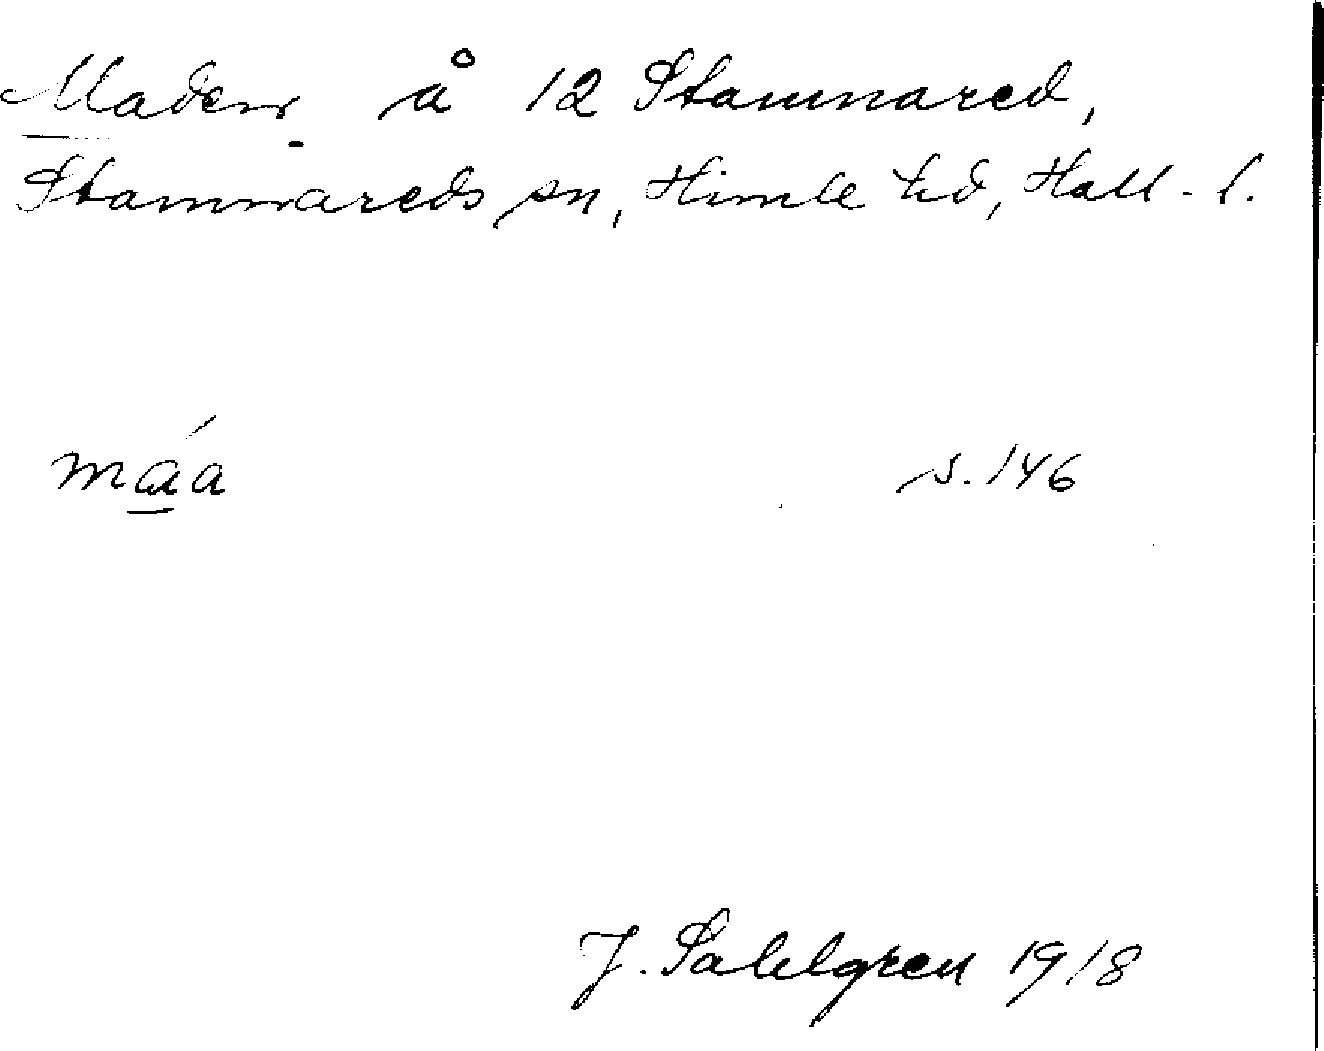 Maden å 12 Stamnared,
Stamnareds sn, Himle hd, Hall. l.
máa s. 146
J. Sahlgren 1918